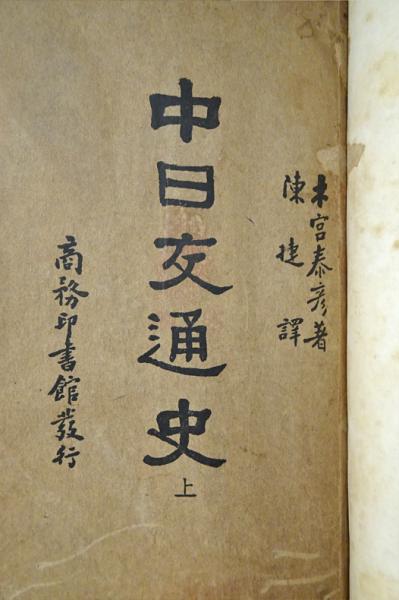 木宮泰彥著
陳捷譯
中日交通史
上
商務印書館發行